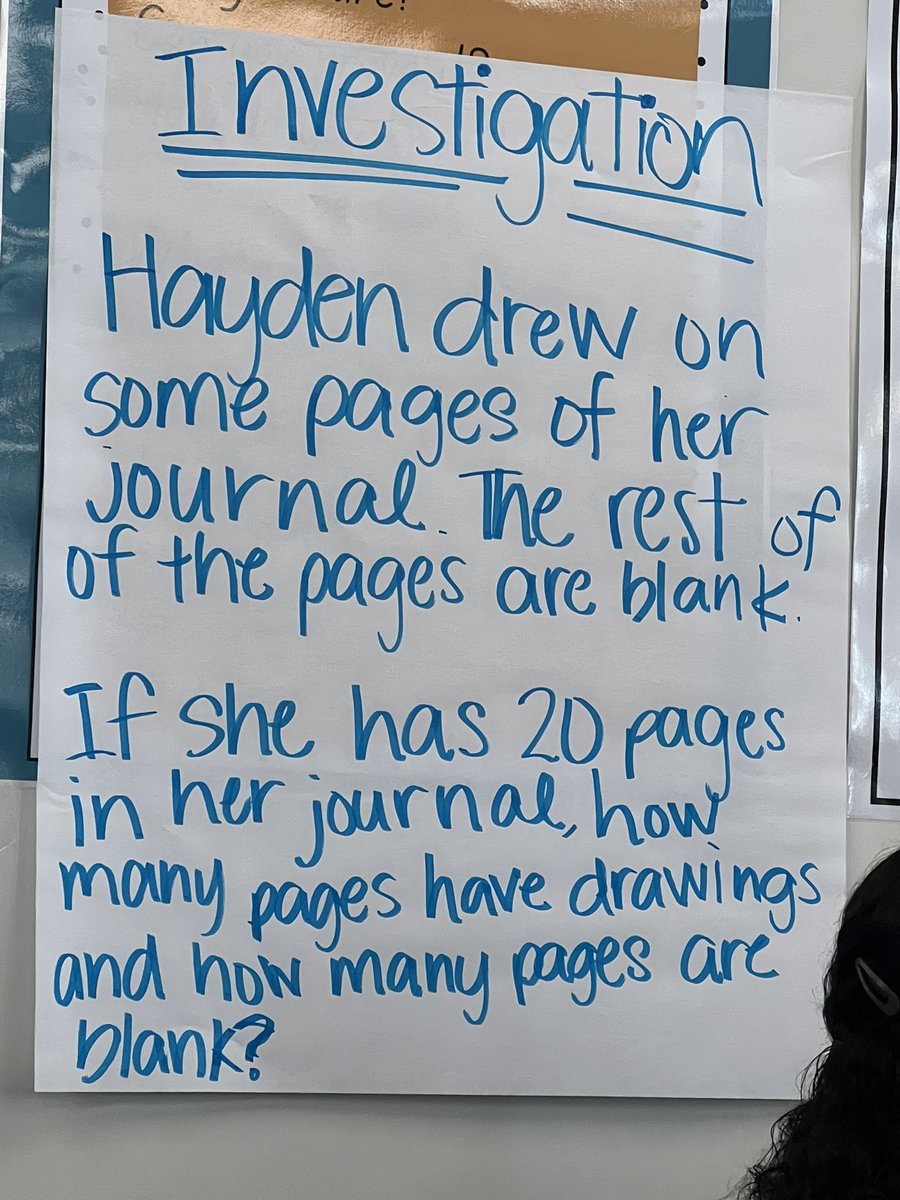 Investigation
Hayden drew on
some pages of her
journal. The rest of
of the pages are blank.
If she has 20 pages
in her journal, how
many pages have drawings
and how many pages are
blank?